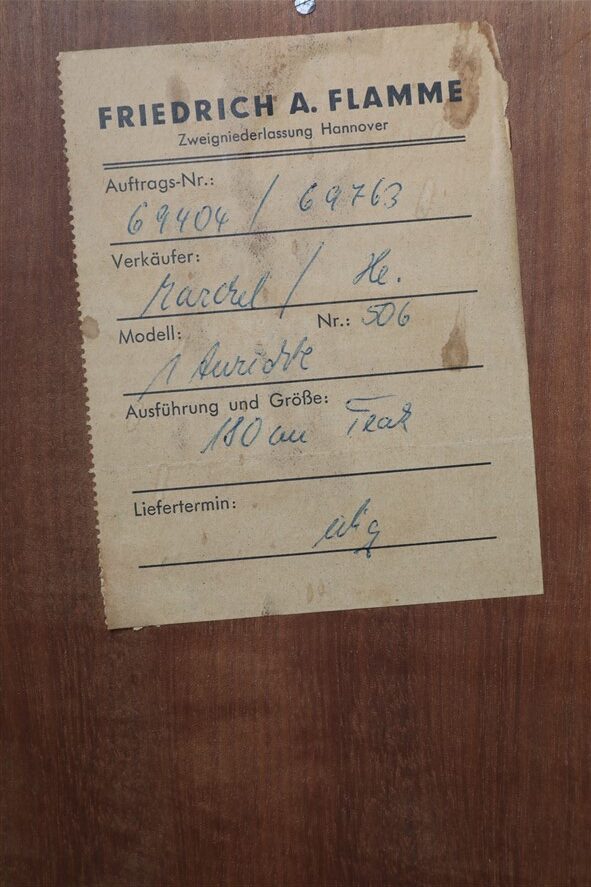 FRIEDRICH A. FLAMME
Zweigniederlassung Hannover
Auftrags-Nr.:
69404 / 69763
Verkäufer:
/ He.
Modell: Nr.: 506
1 Anrichte
Ausführung und Größe:
180 cm Teak
Liefertermin: